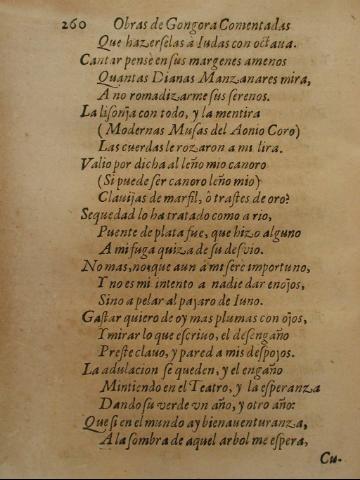 260 Obras de Gongora Comentadas
Que hazerselas à Iudas con octaua.
Cantar pensè en sus margenes amenos
Quantas Dianas Manzanares mira,
A no romadizarme sus serenos.
La lisonja con todo, y la mentira
(Modernas Musas del Aonio Coro)
Las cuerdas le rozaron a mi lira.
Valio por dicha al leño mio canoro
(Si puede ser canoro leño mio)
Clauijas de marfil, ò trastes de oro?
Sequedad lo ha tratado como a rio,
Puente de plata fue, que hizo alguno
A mi fuga quiza de su desvio.
No mas, no, que aun à mi sere importuno,
Y no es mi intento a nadie dar enojos,
Sino a pelar al pajaro de Iuno.
Gastar quiero de oy mas plumas con ojos,
Y mirar lo que escriuo, el desengaño
Preste clauo, y pared a mis despojos.
La adulacion se queden, y el engaño
Mintiendo en el Teatro, y la esperanza
Dando su verde vn año, y otro año:
Que si en el mundo ay bienauenturanza,
A la sombra de aquel arbol me espera,
Cu-